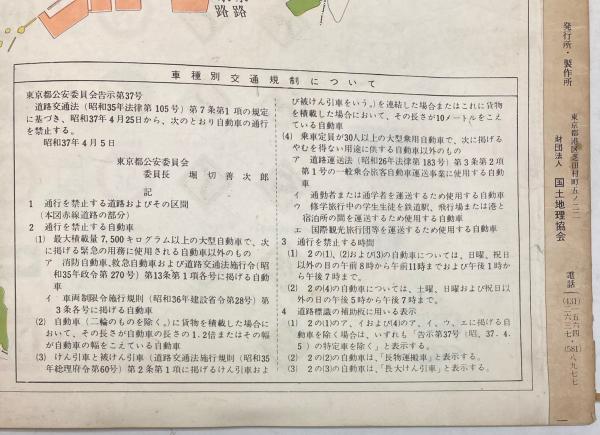 車種別交通規制について
東京都公安委員会告示第37号
道路交通法（昭和35年法律第105号）第7条第1項の規定
に基づき、昭和37年4月25日から、次のとおり自動車の通行
を禁止する。
昭和37年4月5日
東京都公安委員会
委員長　堀切善次郎
記
1　通行を禁止する道路およびその区間
（本図赤線道路の部分）
2　通行を禁止する自動車
(1)　最大積載量7,500キログラム以上の大型自動車で、次
に掲げる緊急の用務に使用される自動車以外のもの
ア　消防自動車、救急自動車および道路交通法施行令（昭
和35年政令第270号）第13条第1項各号に掲げる自動
車
イ　車両制限令施行規則（昭和36年建設省令第28号）第
3条各号に掲げる自動車
(2)　自動車（二輪のものを除く。）に貨物を積載した場合に
おいて、その長さが自動車の長さの1.2倍またはその幅
が自動車の幅をこえている自動車
(3)　けん引車と被けん引車（道路交通法施行規則（昭和35
年総理府令第60号）第2条第1項に掲げるけん引車およ
び被けん引車をいう。）を連結した場合またはこれに貨物
を積載した場合において、その長さが10メートルをこえ
ている自動車
(4)　乗車定員が30人以上の大型乗用自動車で、次に掲げる
やむを得ない用途に供する自動車以外のもの
ア　道路運送法（昭和26年法律第183号）第3条第2項
第1号の一般乗合旅客自動車運送事業に使用する自動
車
イ　通勤者または通学者を運送するため使用する自動車
ウ　修学旅行中の学生生徒を鉄道駅、飛行場または港と
宿泊所の間を運送するため使用する自動車
エ　国際観光旅行団等を運送するため使用する自動車
3　通行を禁止する時間
(1)　2の(1)、(2)および(3)の自動車については、日曜、祝日
以外の日の午前8時から午前11時までおよび午後1時か
ら午後7時まで。
(2)　2の(4)の自動車については、土曜、日曜および祝日以
外の日の午後5時から午後7時まで。
4　道路標識の補助板に用いる表示
(1)　2の(1)のア、イおよび(4)のア、イ、ウ、エに掲げる自
動車を除く場合は、いずれも「告示第37号（昭、37．4．
5）の特定車を除く」と表示する。
(2)　2の(2)の自動車は、「長物運搬車」と表示する。
(3)　2の(3)の自動車は、「長大けん引車」と表示する。
発行所・製作所
東京都港区芝田村町五ノ二二
財団法人　国土地理協会
電話